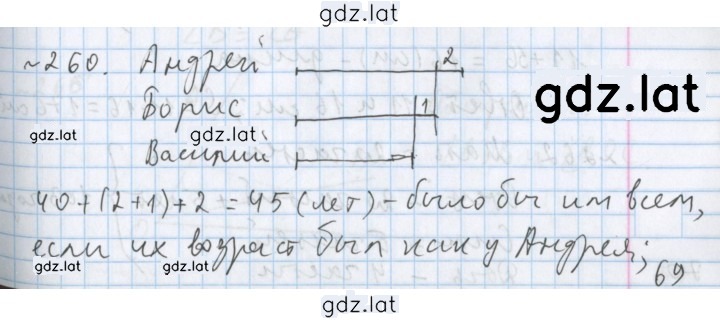 gdz.lat
~260. Андрей 2
Борис 1
gdz.lat
gdz.lat
gdz.lat
Василий
40+(2+1)+2=45 (лет) - было бы им всем,
если их возраст был как у Андрея;
gdz.lat
gdz.lat
69
gdz.lat